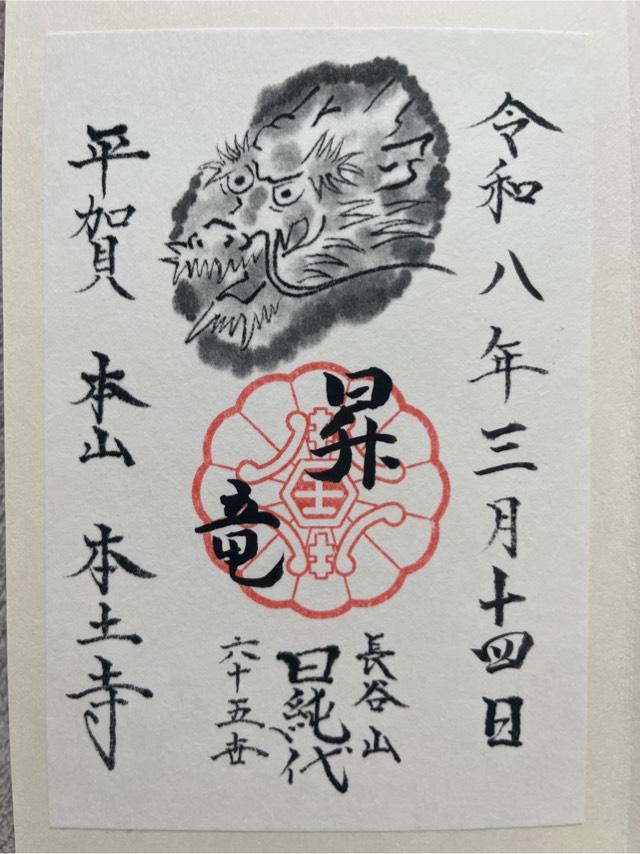 令和八年三月十四日
昇
竜
長谷山
日純代
六十五世
平賀 本山 本土寺